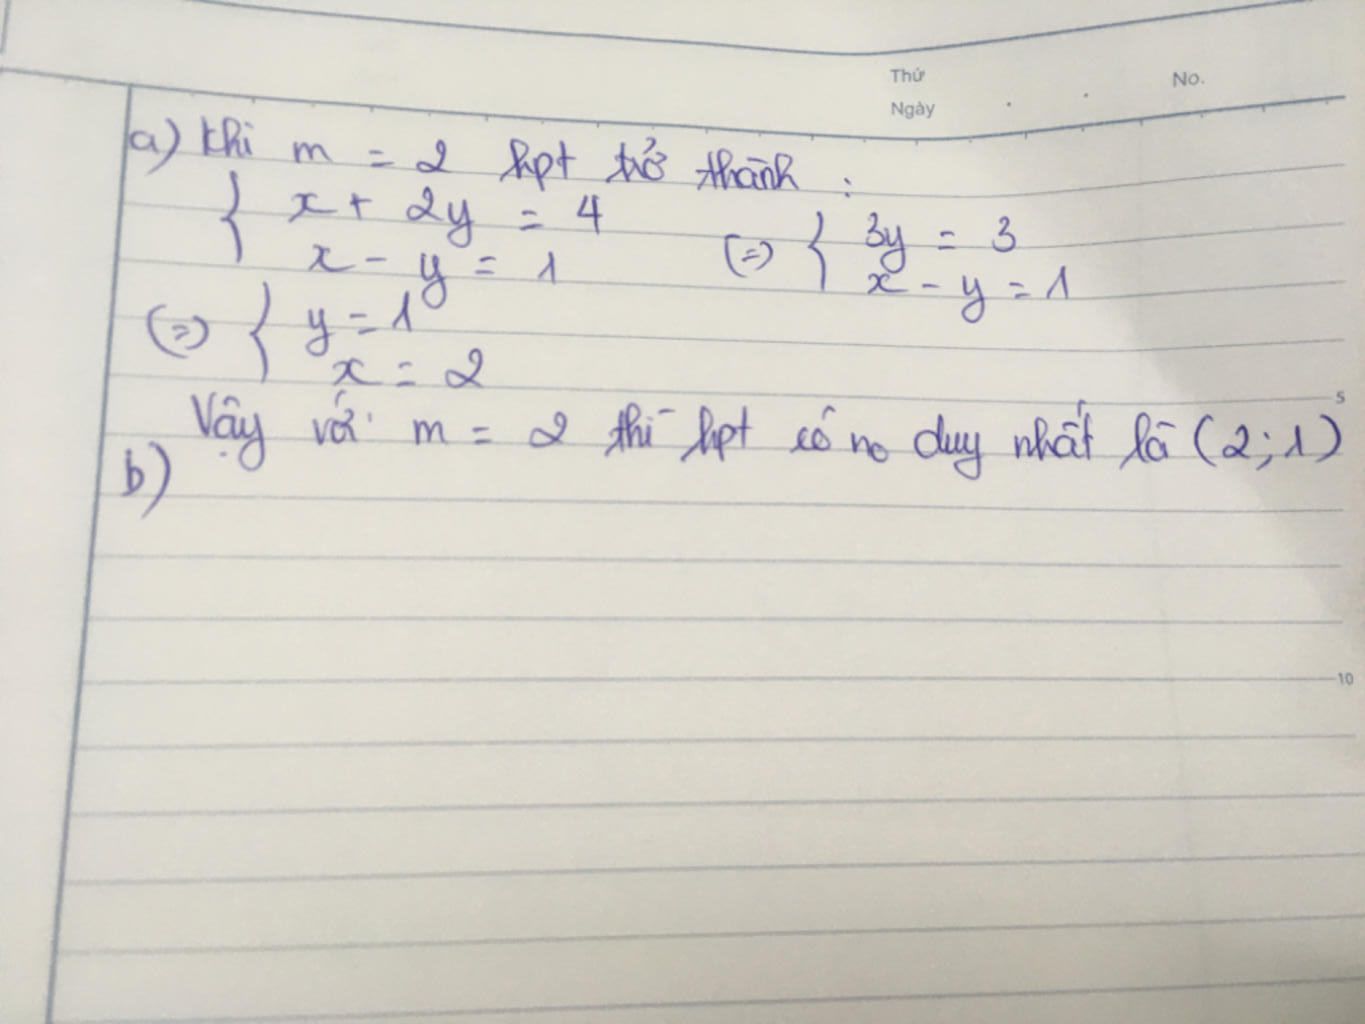 Thứ
No.
Ngày
a) Khi m = 2 hpt trở thành :
{ x + 2y = 4
x - y = 1
(=) { 3y = 3
x - y = 1
(=) { y = 1
x = 2
Vậy với m = 2 thì hpt có no duy nhất là (2; 1)
5
b)
10